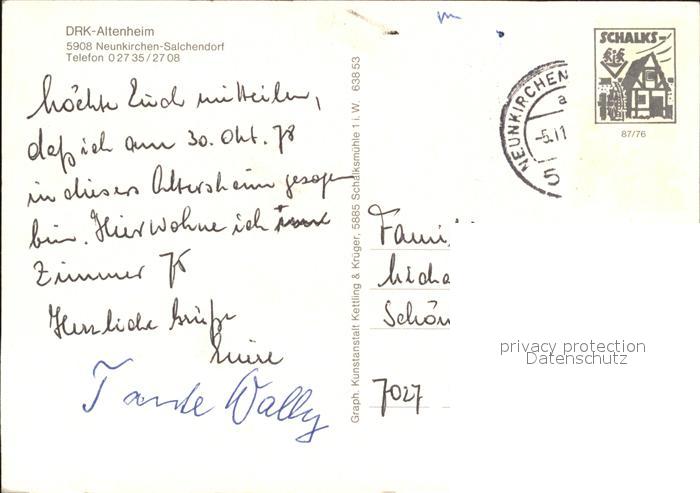 DRK-Altenheim
5908 Neunkirchen-Salchendorf
Telefon 0 27 35 / 27 08
Möchte Euch mitteilen,
daß ich am 30. Okt. 78
in dieses Altersheim gezogen
bin. Hier wohne ich
Zimmer 75
Herzliche Grüße
Eure
Tante Wally
Graph. Kunstanstalt Kettling & Krüger, 5885 Schalksmühle 1 i. W. 638 53
NEUNKIRCHEN
a
-5.11
5
SCHALKS-
87/76
Fami
Micha
Schön
7027
privacy protection
Datenschutz